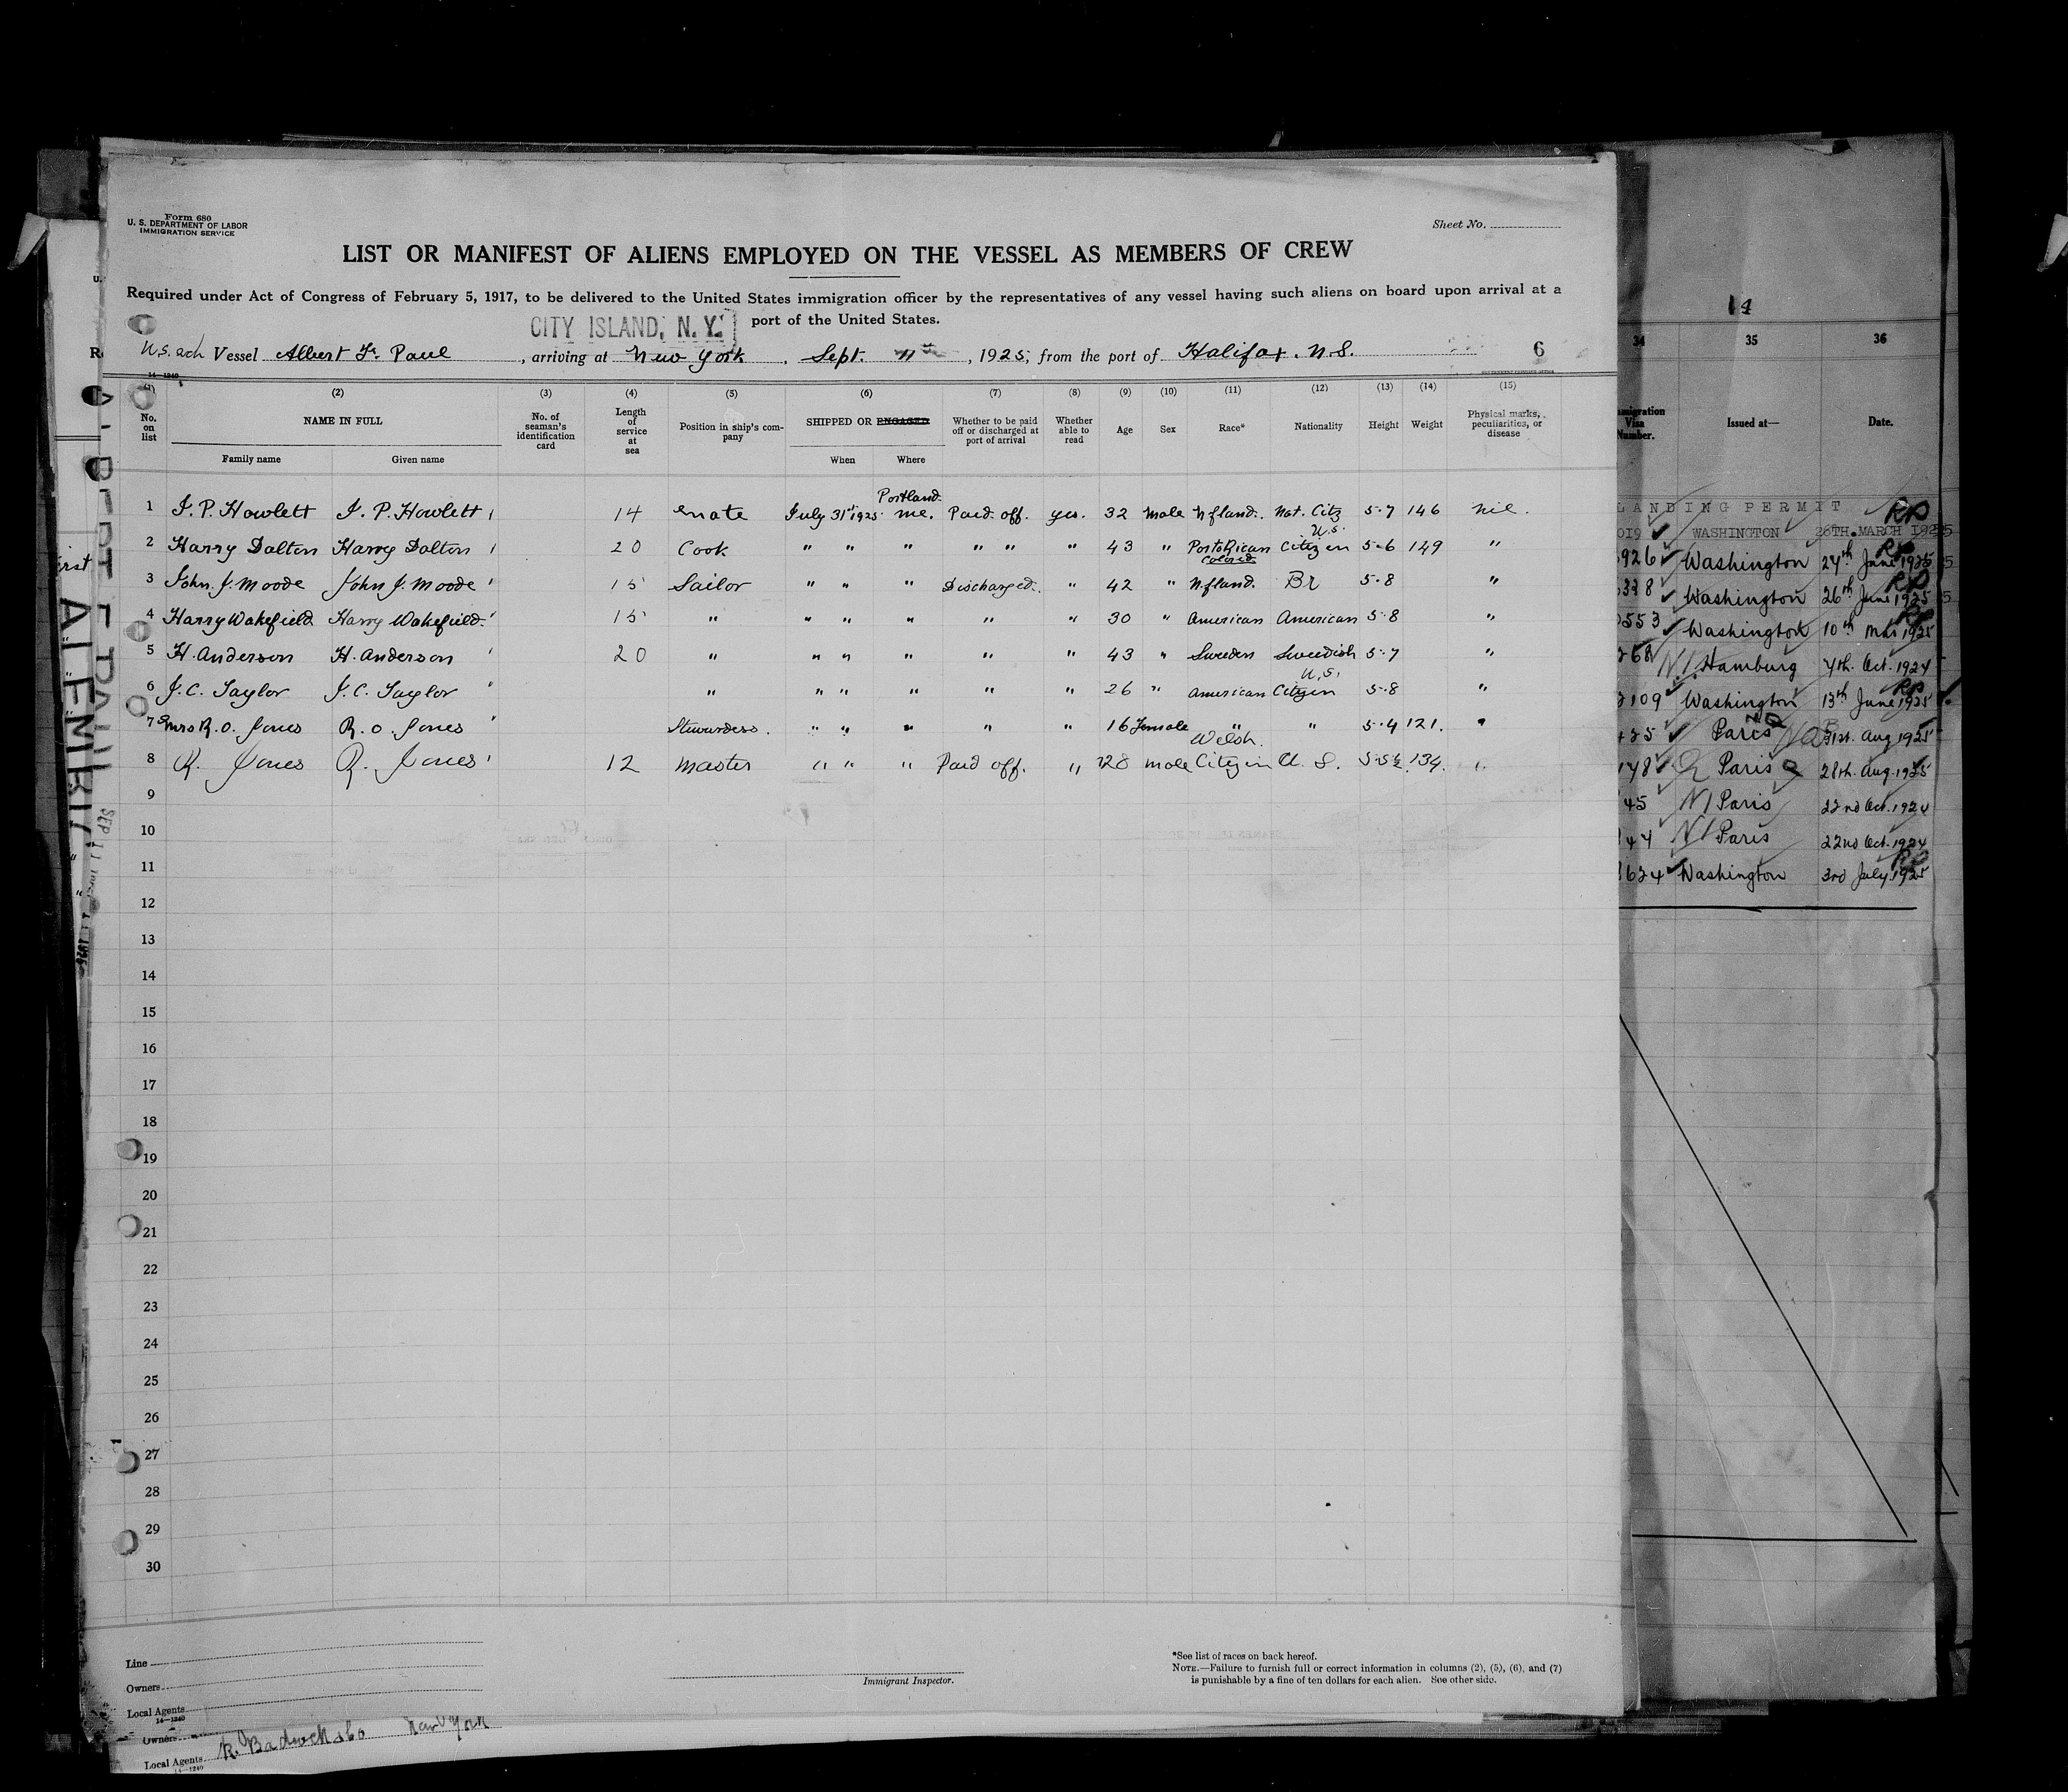 Form 680
U. S. DEPARTMENT OF LABOR
IMMIGRATION SERVICE
Sheet No.
LIST OR MANIFEST OF ALIENS EMPLOYED ON THE VESSEL AS MEMBERS OF CREW
Required under Act of Congress of February 5, 1917, to be delivered to the United States immigration officer by the representatives of any vessel having such aliens on board upon arrival at a
port of the United States.
CITY ISLAND, N. Y.
U.S. sch Vessel Albert F. Paul, arriving at New York, Sept. 11th, 1925, from the port of Halifax. N.S. 6
14-1240
(1) (2) (3) (4) (5) (6) (7) (8) (9) (10) (11) (12) (13) (14) (15)
No. on list NAME IN FULL No. of seaman's identification card Length of service at sea Position in ship's company SHIPPED OR ENGAGED Whether to be paid off or discharged at port of arrival Whether able to read Age Sex Race* Nationality Height Weight Physical marks, peculiarities, or disease
Family name Given name When Where
1 J. P. Howlett J. P. Howlett 14 Mate July 31st 1925 Portland Me. Paid off. yes. 32 Male Nfland. Nat. Citz 5-7 146 nil.
2 Harry Dalton Harry Dalton 20 Cook " " " " " " 43 " PortoRican Colored U.S. Citizen 5-6 149 "
3 John. J. Moode John J. Moode 15 Sailor " " " Discharged. " 42 " Nfland. Br 5-8 "
4 Harry Wakefield Harry Wakefield. 15 " " " " " " 30 " American American 5-8 "
5 H. Anderson H. Anderson 20 " " " " " " 43 " Sweden Swedish 5-7 "
6 J. C. Taylor J. C. Taylor " " " " " " 26 " American U.S. Citizen 5-8 "
7 Mrs R. O. Jones R. O. Jones Stewardess. " " " " " 16 Female " " 5-4 121. "
8 R. Jones R. Jones 12 Master " " " Paid off. " 28 male Welsh. Citizen U. S. 5-5½ 134. "
9
10
11
12
13
14
15
16
17
18
19
20
21
22
23
24
25
26
27
28
29
30
Line
Owners
Local Agents
14-1240
Immigrant Inspector.
*See list of races on back hereof.
NOTE.—Failure to furnish full or correct information in columns (2), (5), (6), and (7)
is punishable by a fine of ten dollars for each alien. See other side.
Owners
Local Agents New York
14-1240
14
34 35 36
Immigration Visa Number. Issued at— Date.
LANDING PERMIT
019 WASHINGTON 26TH. MARCH 1925
926 Washington 24th June 1925
328 Washington 26th June 1925
553 Washington 10th Mar 1925
268 Hamburg 7th. Oct. 1924
109 Washington 13th June 1925
Paris 31st. Aug 1925
Paris 28th. Aug. 1925
45 Paris 22nd Oct. 1924
44 Paris 22nd Oct. 1924
624 Washington 3rd July. 1925